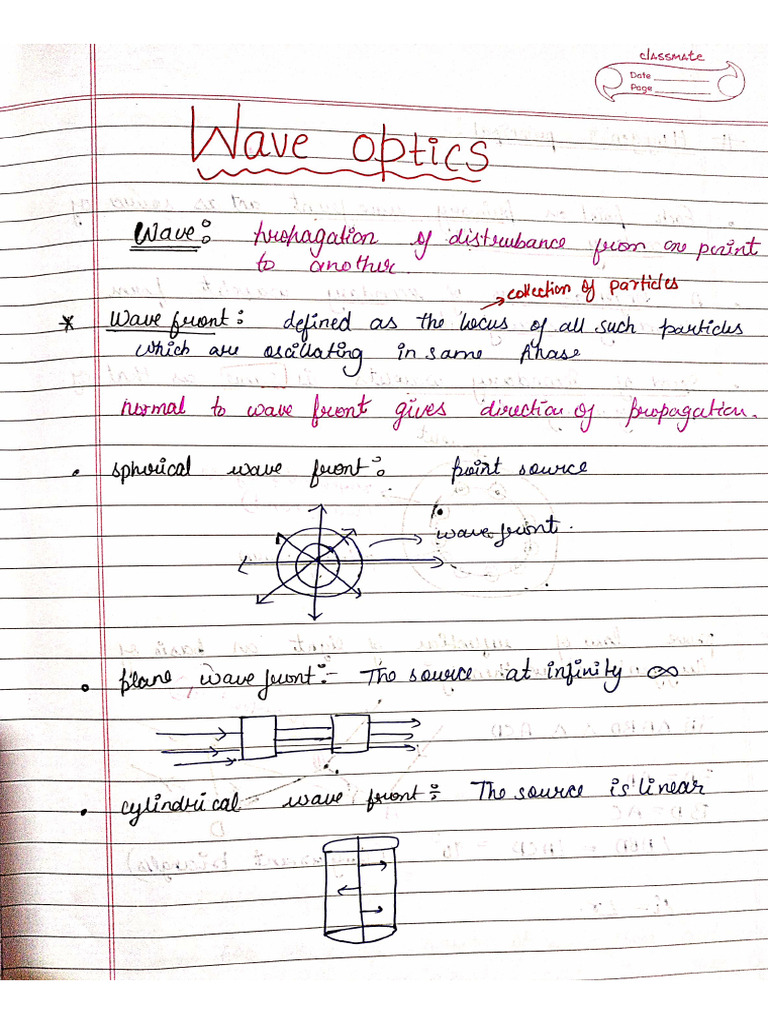 classmate
Date
Page
Wave optics
Wave: propagation of distrubance from one point
to another
collection of particles
* Wave front: defined as the locus of all such particles
which are oscillating in same phase
normal to wave front gives direction of propagation.
• spherical wave front: point source
wave front.
• plane wave front:- The source at infinity ∞
• cylindrical wave front: The source is linear